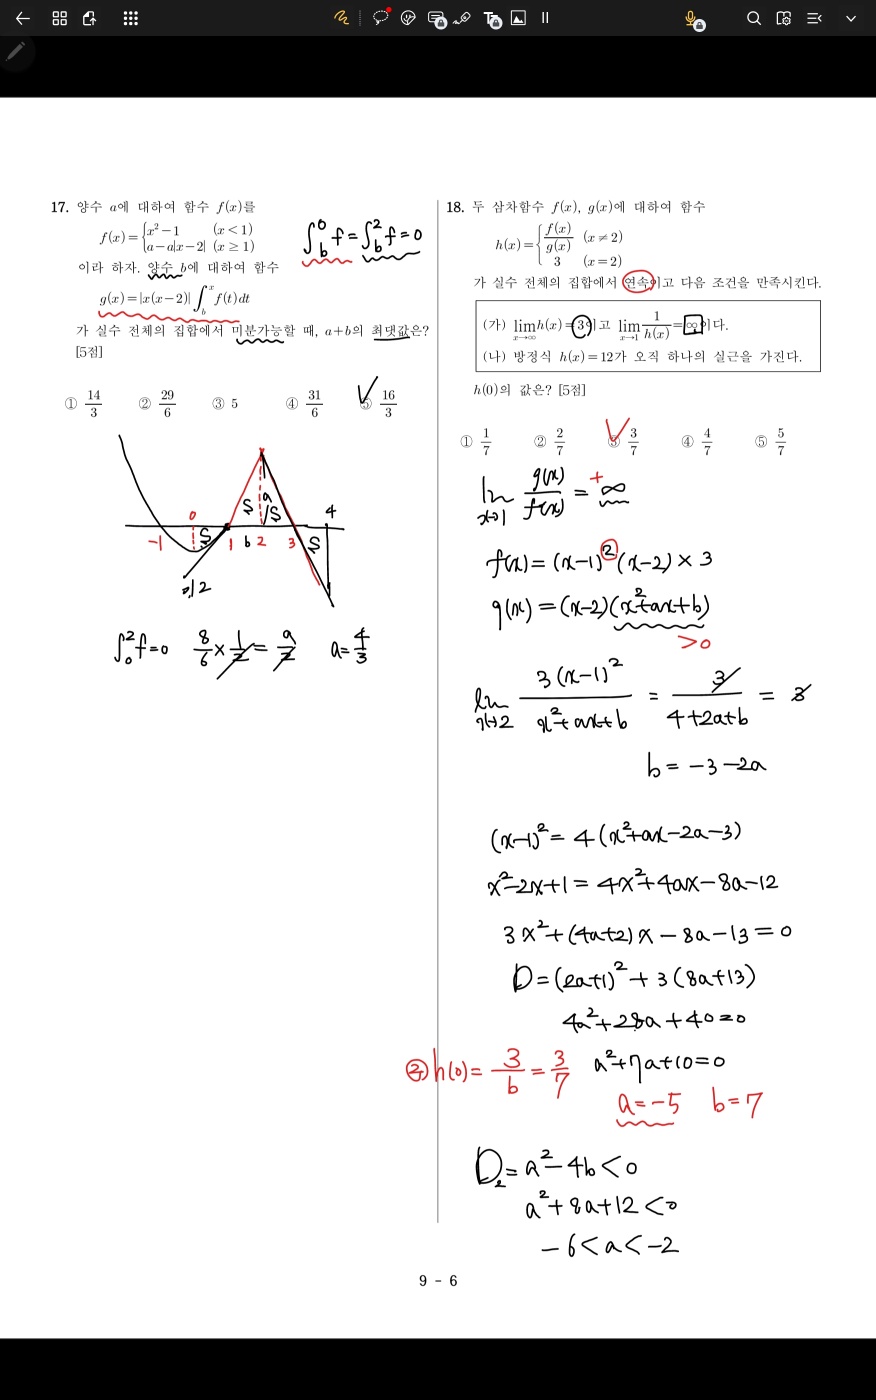 17. 양수 a에 대하여 함수 f(x)를
f(x)={x²-1 (x<1)
a-a|x-2| (x≥1)
이라 하자. 양수 b에 대하여 함수
g(x)=|x(x-2)|∫_b^x f(t)dt
가 실수 전체의 집합에서 미분가능할 때, a+b의 최댓값은?
[5점]
① 14/3 ② 29/6 ③ 5 ④ 31/6 ⑤ 16/3
∫_b^0 f=∫_b^2 f=0
0 S a S 4
-1 S 1 b 2 3 S
∫_0^2 f=0 8/6×1/2=a/2 a=4/3
18. 두 삼차함수 f(x), g(x)에 대하여 함수
h(x)={f(x)/g(x) (x≠2)
3 (x=2)
가 실수 전체의 집합에서 연속이고 다음 조건을 만족시킨다.
(가) lim_{x→∞} h(x)=3이고 lim_{x→1} 1/h(x)=∞이다.
(나) 방정식 h(x)=12가 오직 하나의 실근을 가진다.
h(0)의 값은? [5점]
① 1/7 ② 2/7 ③ 3/7 ④ 4/7 ⑤ 5/7
lim_{x→1} g(x)/f(x) = +∞
f(x)=(x-1)²(x-2)×3
g(x)=(x-2)(x²+ax+b)
>0
lim_{x→2} 3(x-1)²/(x²+ax+b) = 3/(4+2a+b) = 3
b=-3-2a
(x-1)²=4(x²+ax-2a-3)
x²-2x+1=4x²+4ax-8a-12
3x²+(4a+2)x-8a-13=0
D=(2a+1)²+3(8a+13)
4a²+28a+40=0
②h(0)=3/b=3/7 a²+7a+10=0
a=-5 b=7
D₂=a²-4b<0
a²+8a+12<0
-6<a<-2
9 - 6